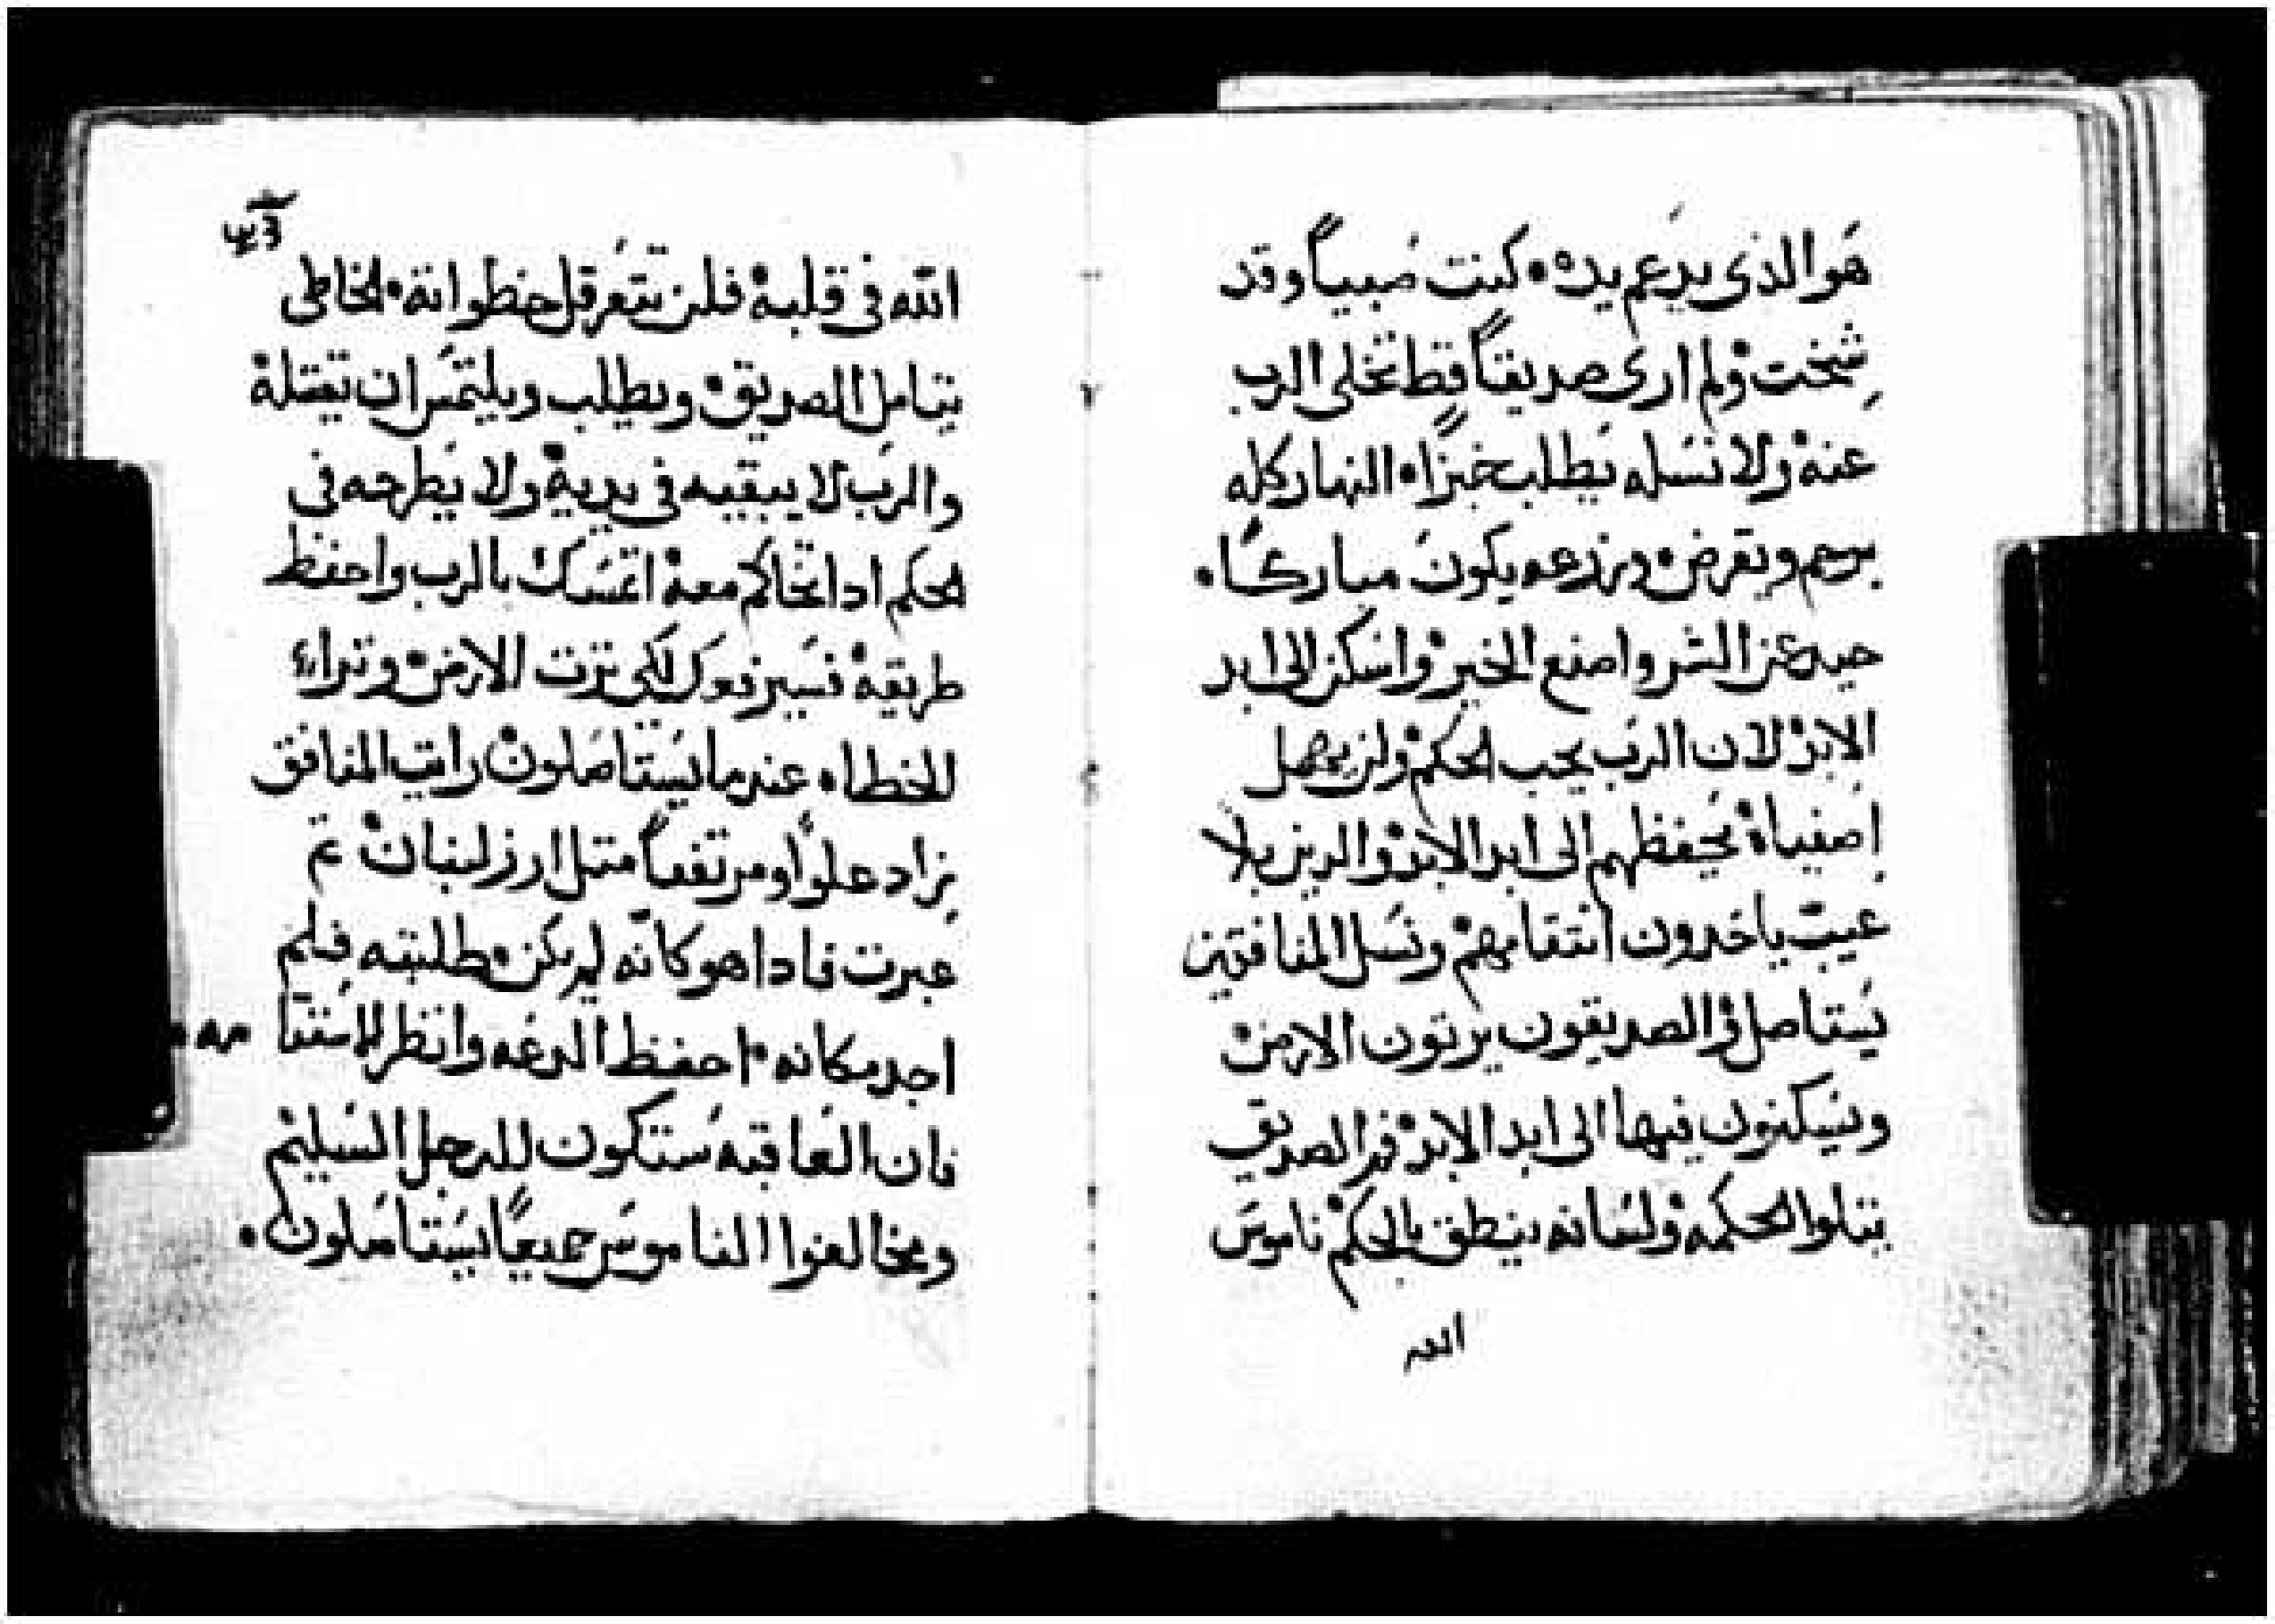 هو الذي يدعم يده • كنت صبياً وقد
شخت ولم ارى صديقاً قط تخلى الرب
عنه ولا نسله يطلب خبزاً • النهار كله
يرحم ويقرض وزرعه يكون مباركاً •
حيد عن الشر واصنع الخير واسكن الى ابد
الابد لان الرب يحب الحكم ولن يهمل
اصفياه يحفظهم الى ابد الابد والدين بلا
عيب ياخدون انتقامهم ونسل المنافقين
يستاصل والصديقون يرتون الارض
ويسكنون فيها الى ابد الابد فم الصديق
يتلوا الحكمه ولسانه ينطق بالحكم ناموس
الله
الله في قلبه فلن تتعرقل خطواته • الخاطى
يتامل الصديق ويطلب ويلتمس ان يقتله
والرب لا يبقيه في يديه ولا يطرحه في
الحكم ادا تخاكم معه اتمسك بالرب واحفظ
طريقه فسيرفعك لكي ترت الارض وتراء
للخطاه عندما يستاصلون رايت المنافق
يزاد علواً ومرتفعاً متل ارز لبنان تم
عبرت فادا هو كانه لم يكن • طلبته فلم
اجد مكانه • احفظ الدعه وانظر الاستقا مه •
فان العاقبه ستكون للرجل السليم
ومخالفوا الناموس جميعاً يستاصلون •